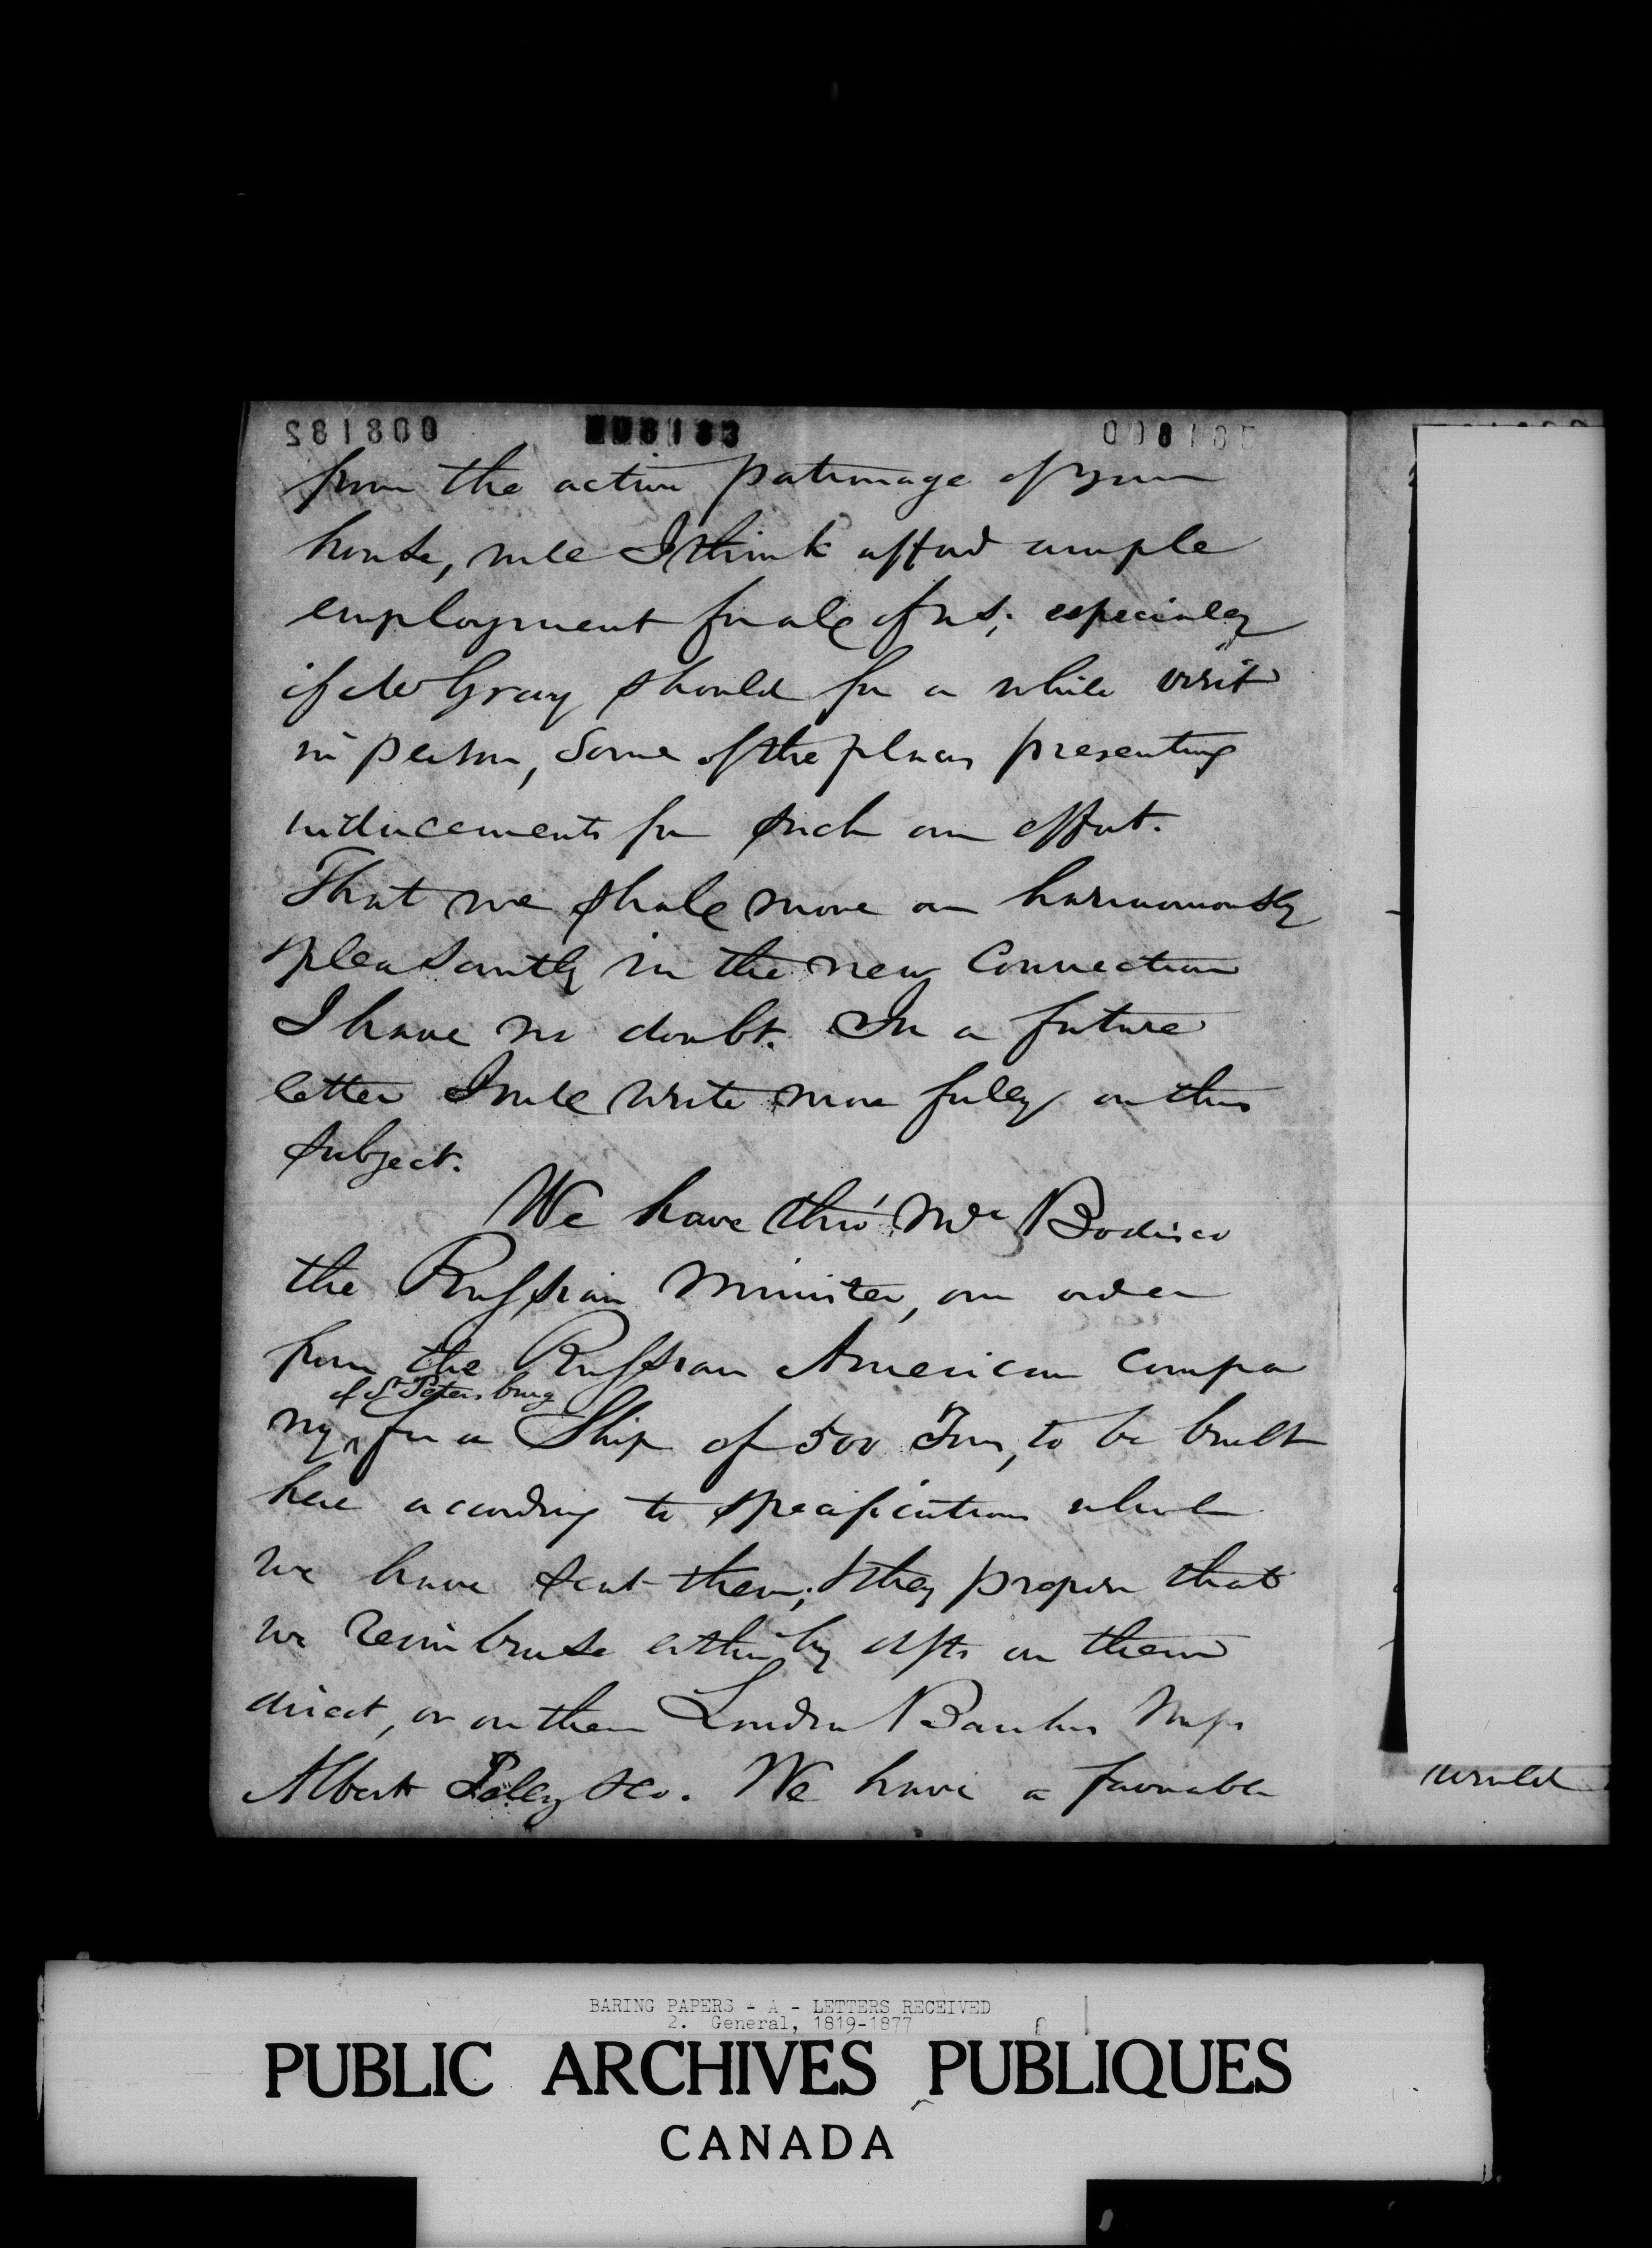 008182 008183 00818
from the active patronage of your
house, will I think afford ample
employment for all of us; especially
if Mr Gray should for a while visit
in person, some of the places presenting
inducements for such an effort.
That we shall move on harmoniously
& pleasantly in the new connection
I have no doubt. In a future
letter I will write more fully on this
subject.
We have thro' Mr Bodisco
the Russian Minister, an order
from the Russian American Compa
of St Petersburg
ny, for a Ship of 500 Tons, to be built
here according to specifications which
we have sent them; & they propose that
we reimburse either by dfts on them
direct, or on their London Bankers Messrs
Albert Pelly & Co. We have a favorable
would
BARING PAPERS - A - LETTERS RECEIVED
2. General, 1819-1877
PUBLIC ARCHIVES PUBLIQUES
CANADA